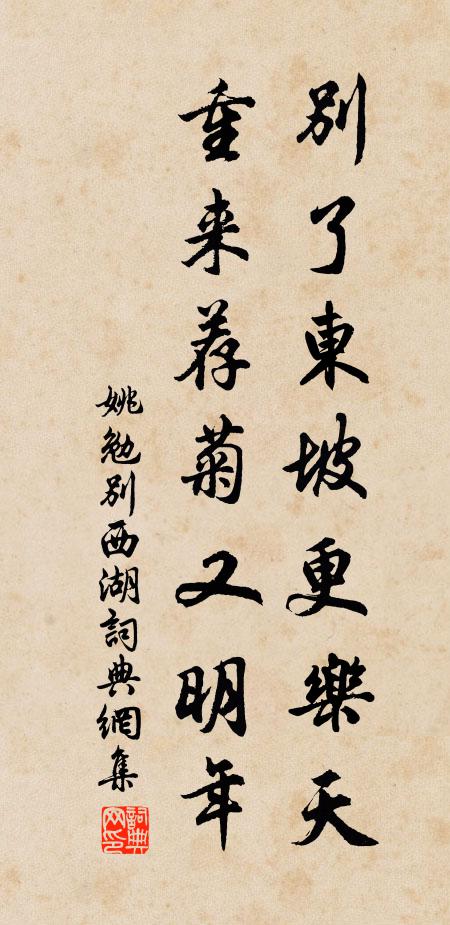 別了東坡更樂天
重来荐菊又明年
姚勉別西湖詞典網集
詞典网印